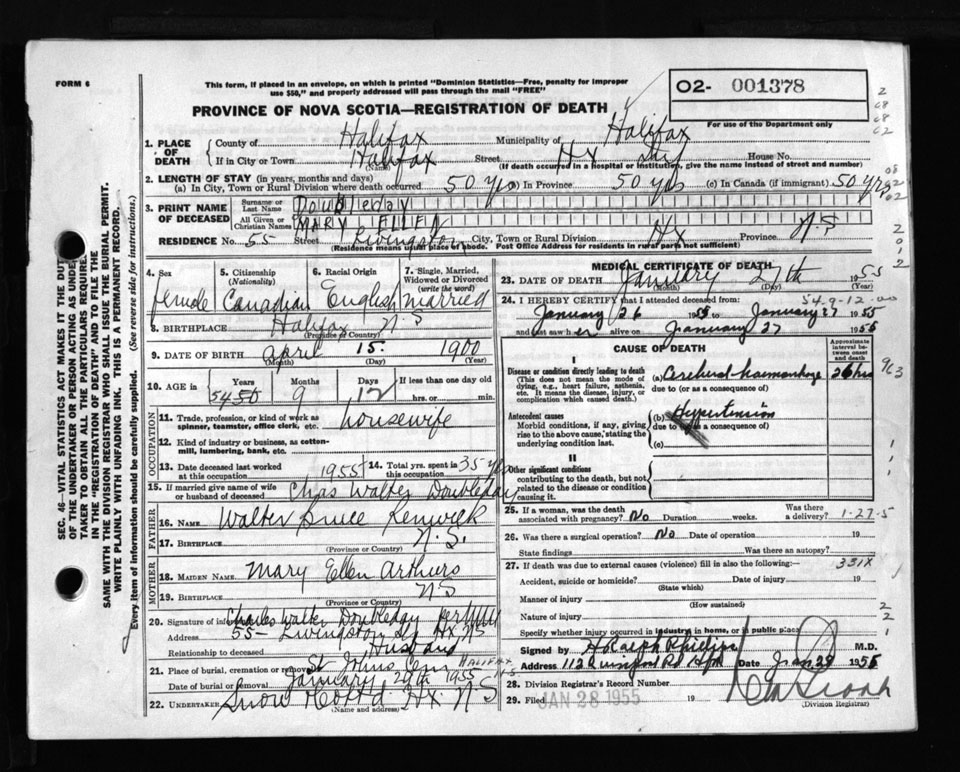 FORM 6
This form, if placed in an envelope, on which is printed "Dominion Statistics—Free, penalty for improper
use $50," and properly addressed will pass through the mail "FREE"
PROVINCE OF NOVA SCOTIA—REGISTRATION OF DEATH
O2- 001378
For use of the Department only
1. PLACE OF DEATH
County of Halifax Municipality of Halifax
If in City or Town Halifax Street Hx House No.
(Name) (If death occurred in a hospital or institution, give the name instead of street and number)
2. LENGTH OF STAY (in years, months and days)
(a) In City, Town or Rural Division where death occurred 50 yrs In Province 50 yrs (c) In Canada (if immigrant) 50 yrs
3. PRINT NAME OF DECEASED
Surname or Last Name Doubleday
All Given or Christian Names MARY ELLEN
RESIDENCE No. 55 Street Livingston City, Town or Rural Division Hx Province N.S
(Residence means usual place of abode. Post Office Address for residents in rural parts not sufficient)
SEC. 46—VITAL STATISTICS ACT MAKES IT THE DUTY
OF THE UNDERTAKER OR PERSON ACTING AS UNDER-
TAKER TO OBTAIN ALL THE PARTICULARS REQUIRED
IN THE "REGISTRATION OF DEATH" AND TO FILE THE
SAME WITH THE DIVISION REGISTRAR WHO SHALL ISSUE THE BURIAL PERMIT.
WRITE PLAINLY WITH UNFADING INK. THIS IS A PERMANENT RECORD.
Every item of information should be carefully supplied. (See reverse side for instructions.)
4. Sex
female
5. Citizenship
(Nationality)
Canadian
6. Racial Origin
English
7. Single, Married,
Widowed or Divorced
(write the word)
married
8. BIRTHPLACE Halifax N.S
(Province or Country)
9. DATE OF BIRTH April 15 1900
(Month) (Day) (Year)
10. AGE in
Years Months Days If less than one day old
54 9 12 hrs. or min.
OCCUPATION
11. Trade, profession, or kind of work as
spinner, teamster, office clerk, etc. housewife
12. Kind of industry or business, as cotton-
mill, lumbering, bank, etc.
13. Date deceased last worked
at this occupation 1955
14. Total yrs. spent in
this occupation 35 yrs
15. If married give name of wife
or husband of deceased Chas Walter Doubleday
FATHER
16. Name Walter Bruce Renwick
17. Birthplace N.S.
(Province or Country)
MOTHER
18. Maiden Name Mary Ellen Arthurs
19. Birthplace NS
(Province or Country)
20. Signature of informant Charles Walter Doubleday per
Address 55- Livingston St Hx NS
Relationship to deceased Husband
21. Place of burial, cremation or removal St Johns Cem HALIFAX N.S
Date of burial or removal January 29th 1955
22. Undertaker Snow Co Ltd Hx N S
(Name and address)
MEDICAL CERTIFICATE OF DEATH
23. DATE OF DEATH January 27th 1955
(Month) (Day)
54-9-12-00
24. I HEREBY CERTIFY that I attended deceased from:
January 26 1955 to January 27 1955
and last saw her alive on January 27 1955
CAUSE OF DEATH
Approximate
interval between
onset and
death
I
Disease or condition directly leading to death
(This does not mean the mode of
dying, e.g., heart failure, asthenia,
etc. It means the disease, injury, or
complication which caused death.)
(a) Cerebral haemorrhage 26 hrs
due to (or as a consequence of)
Antecedent causes
Morbid conditions, if any, giving
rise to the above cause, stating the
underlying condition last.
(b) Hypertension
due to (or as a consequence of)
(c)
II
Other significant conditions
contributing to the death, but not
related to the disease or condition
causing it.
963
25. If a woman, was the death
associated with pregnancy? No Duration weeks. Was there
a delivery? 1-27-5
26. Was there a surgical operation? No Date of operation 19
State findings Was there an autopsy?
27. If death was due to external causes (violence) fill in also the following: 331X
Accident, suicide or homicide? Date of injury 19
(State which)
Manner of injury
(How sustained)
Nature of injury
Specify whether injury occurred in industry in home, or in public place
Signed by H Ralph Phillips M.D.
Address 112 Quinpool Rd Hfx Date Jan 29 1955
28. Division Registrar's Record Number
29. Filed JAN 28 1955 19
(Division Registrar)